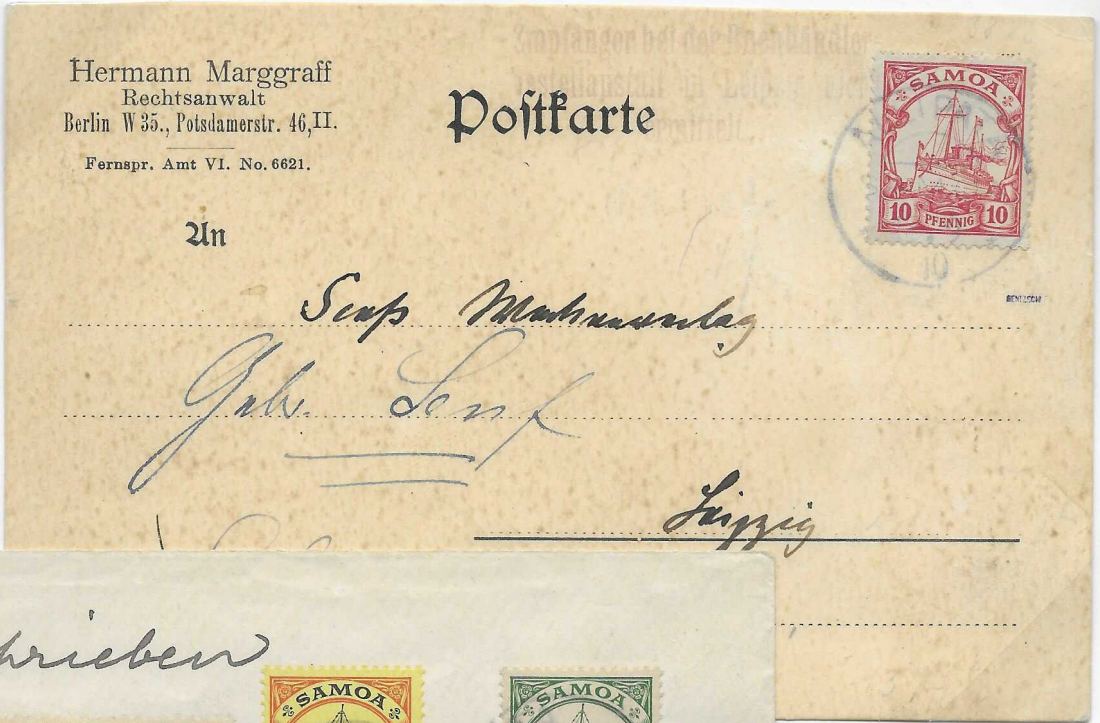 Hermann Marggraff
Rechtsanwalt
Berlin W 35., Potsdamerstr. 46, II.
Fernspr. Amt VI. No. 6621.
Poſtkarte
SAMOA
10 PFENNIG 10
10
An
Gebr. Senf
Leipzig
hrieben
SAMOA
SAMOA